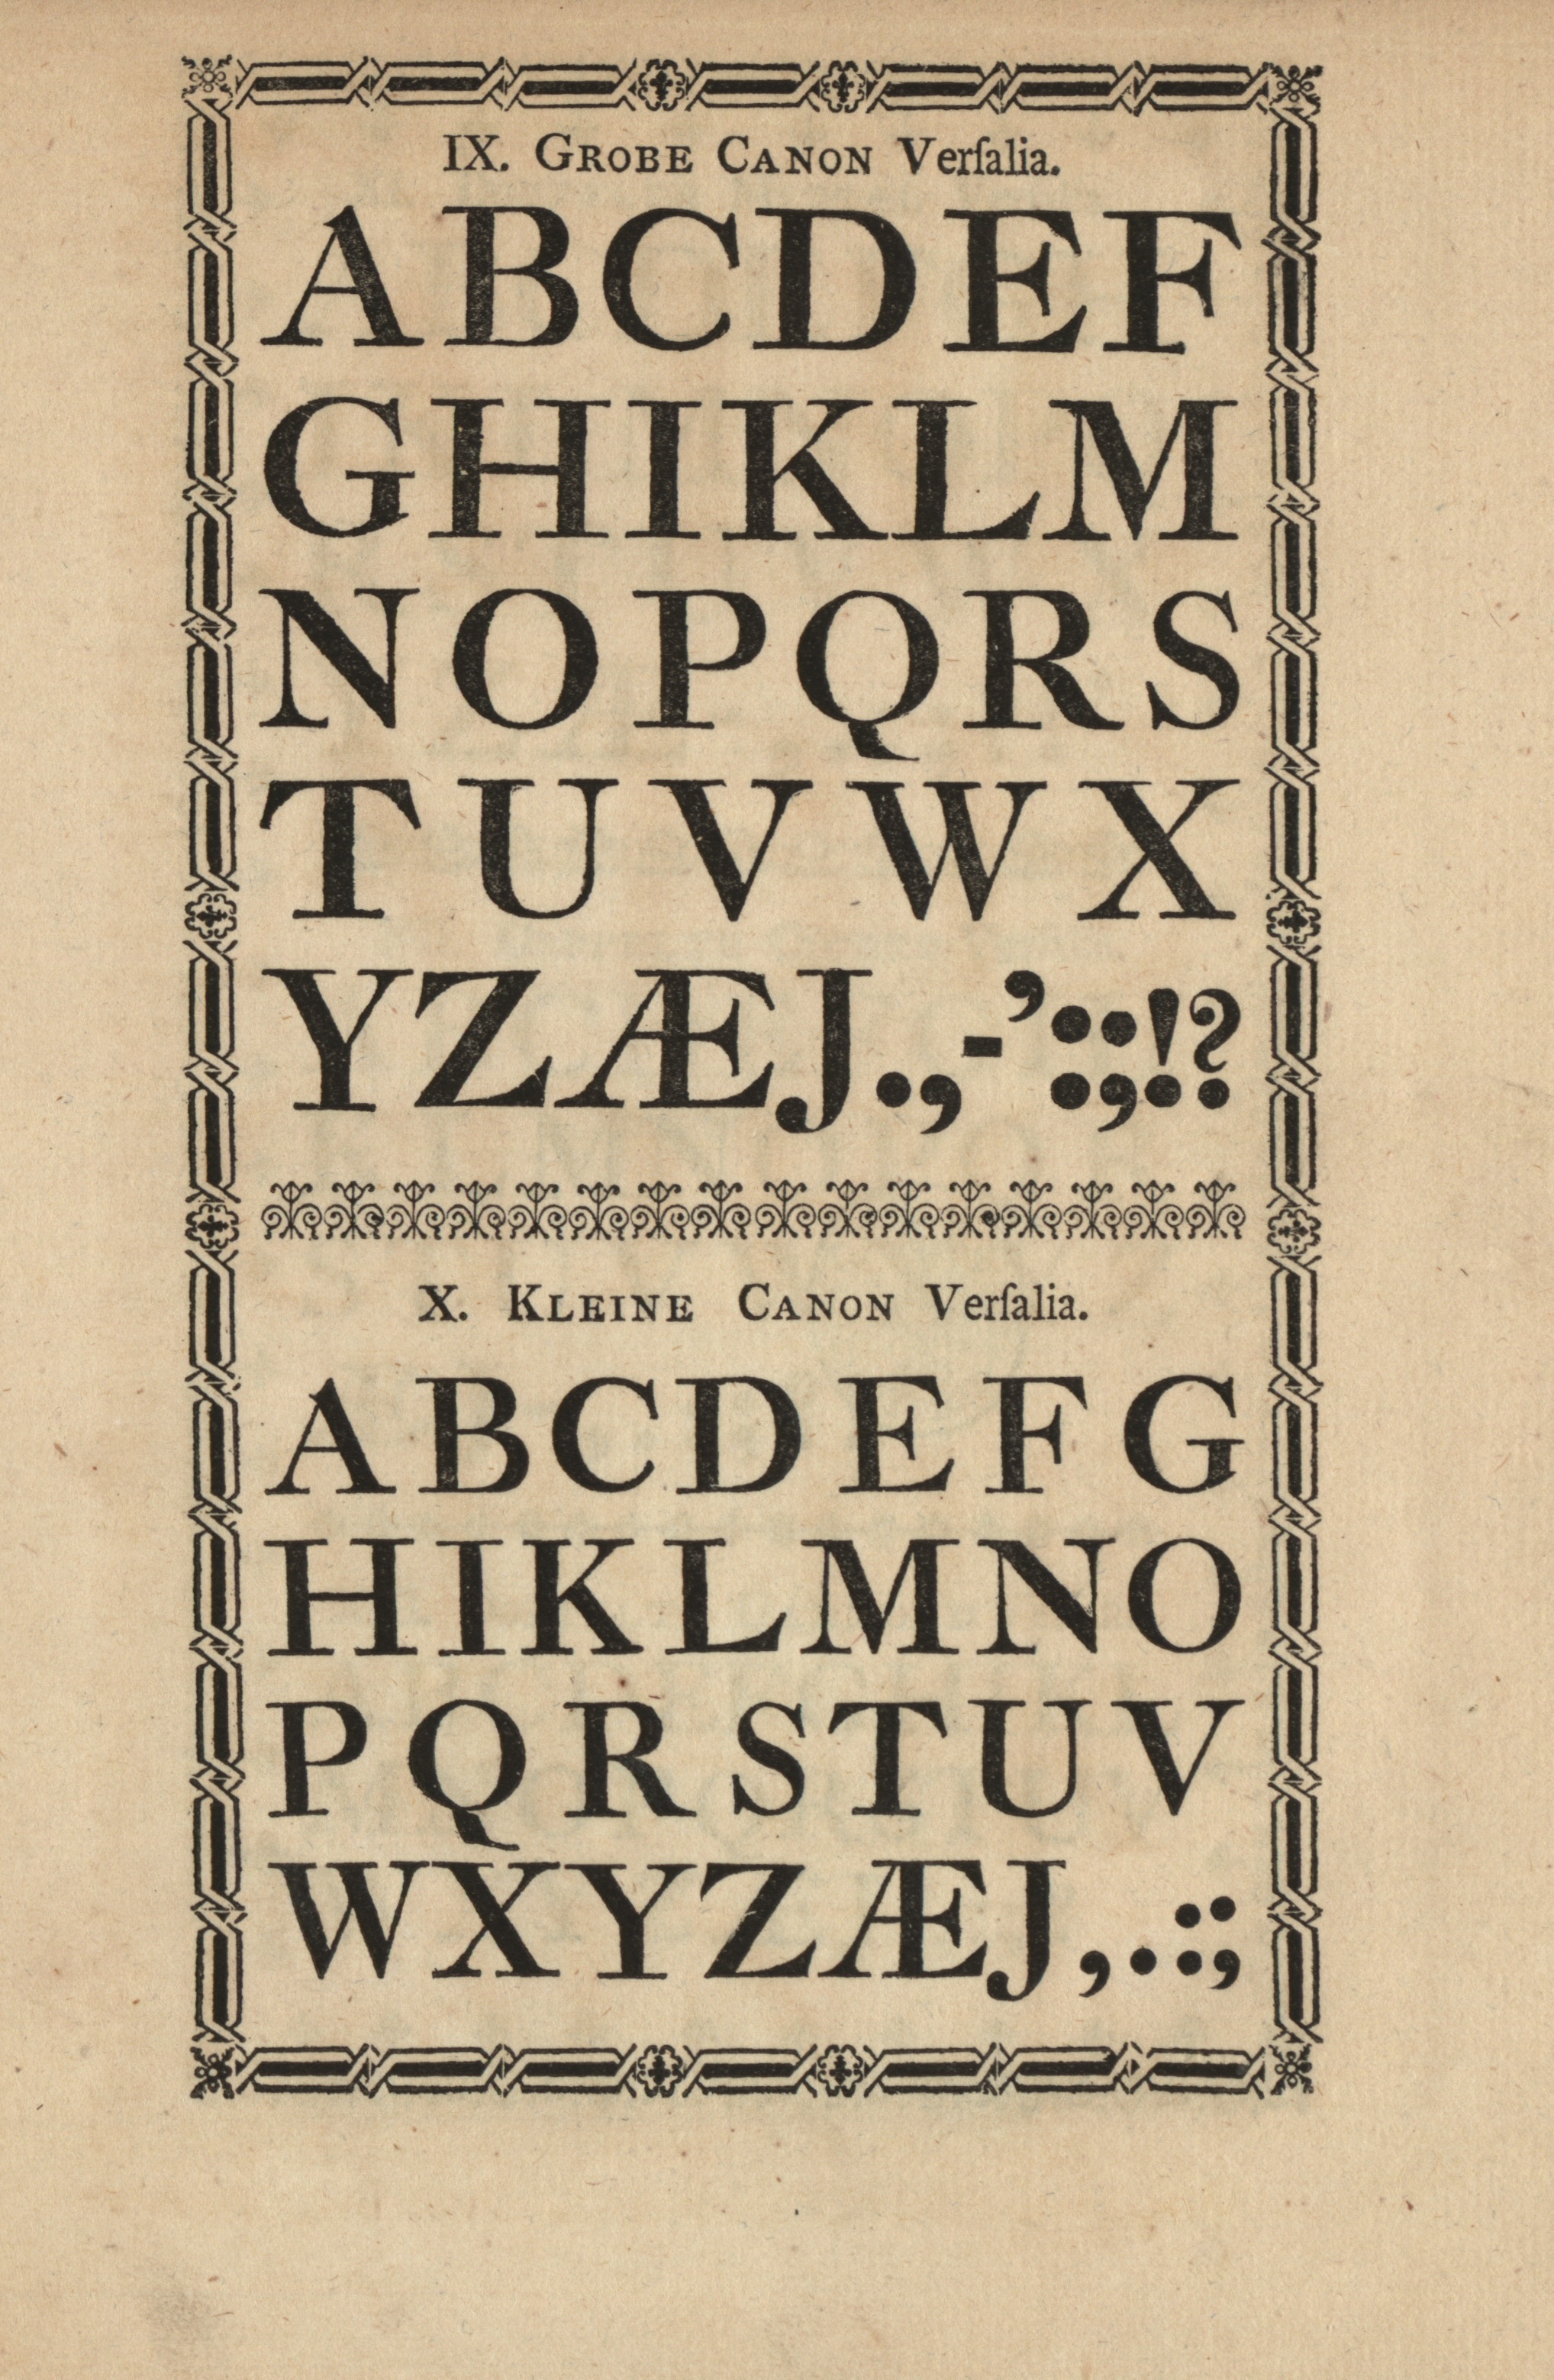 IX. GROBE CANON Verſalia.
ABCDEF
GHIKLM
NOPQRS
TUVWX
YZÆJ.,-’:;!?
X. KLEINE CANON Verſalia.
ABCDEFG
HIKLMNO
PQRSTUV
WXYZÆJ,.:;